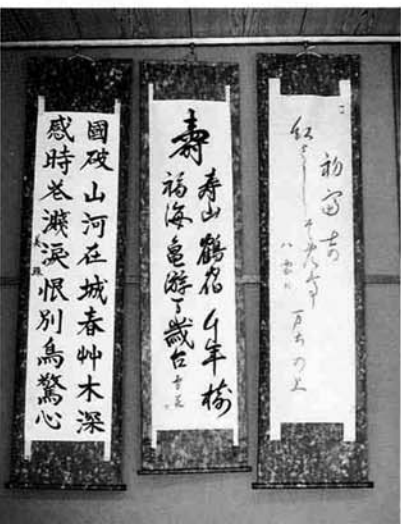 初富士
紅さし
万古の上
壽
寿山鶴宿千年樹
福海亀游万歳台
國破山河在城春艸木深
感時花濺涙恨別鳥驚心